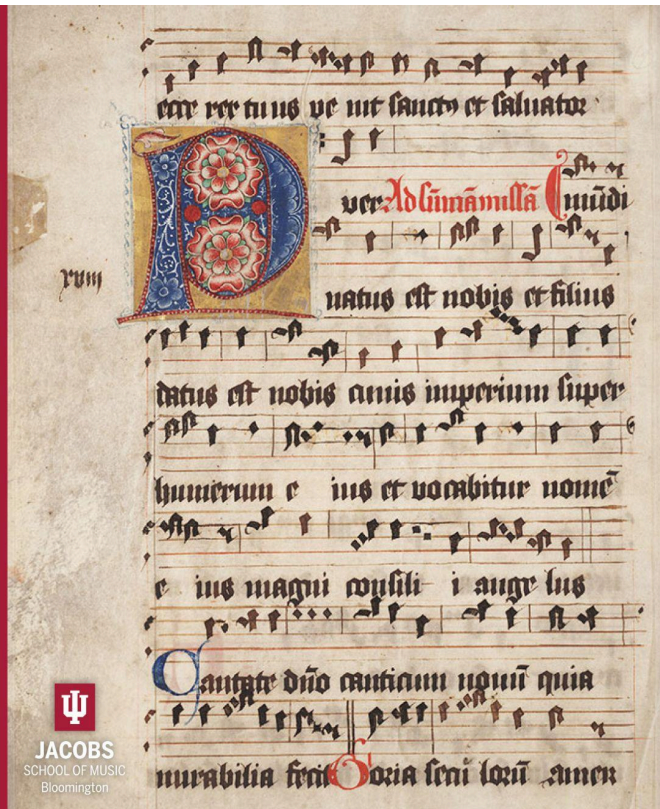 ecce rex tuus ve nit sanctꝰ et saluator
P uer Ad sūmā missā mūdi
xviii
natus est nobis et filius
datus est nobis cuius imperium super
humerum e ius et vocabitur nomē
e ius magni consili i ange lus
Cantate dn̄o canticum nouū quia
mirabilia fecit Goria secu lorū amen
JACOBS
SCHOOL OF MUSIC
Bloomington